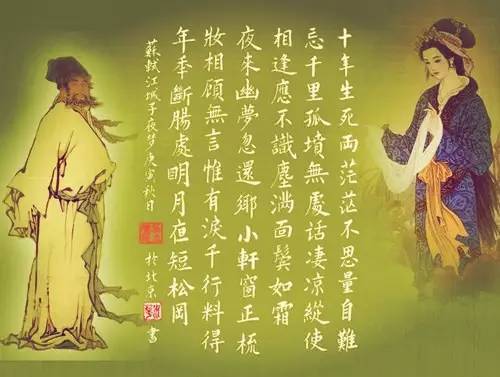 十年生死両茫茫不思量自難
忘千里孤墳無處話凄凉縱使
相逢應不識塵满面鬓如霜
夜來幽夢忽還鄉小軒窗正梳
妝相顧無言惟有淚千行料得
年年斷腸處明月夜短松岡
蘇軾江城子夜梦庚寅秋日於北京書